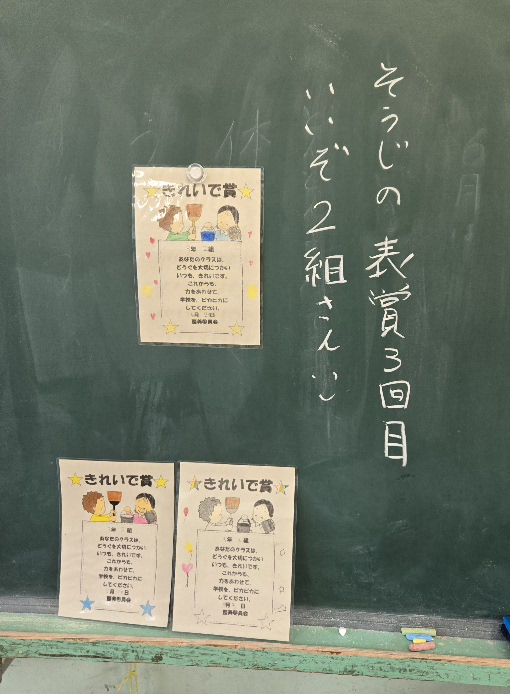 そうじの表賞3回目
いいぞ2組さん
きれいで賞
年 組
あなたのクラスは、
どうぐを大切につかい
いつも、きれいです。
これからも、
力をあわせて、
学校を、ピカピカに
してください。
月 日
整美委員会
きれいで賞
年 組
あなたのクラスは、
どうぐを大切につかい
いつも、きれいです。
これからも、
力をあわせて、
学校を、ピカピカに
してください。
月 日
整美委員会
きれいで賞
年 組
あなたのクラスは、
どうぐを大切につかい
いつも、きれいです。
これからも、
力をあわせて、
学校を、ピカピカに
してください。
月 日
整美委員会